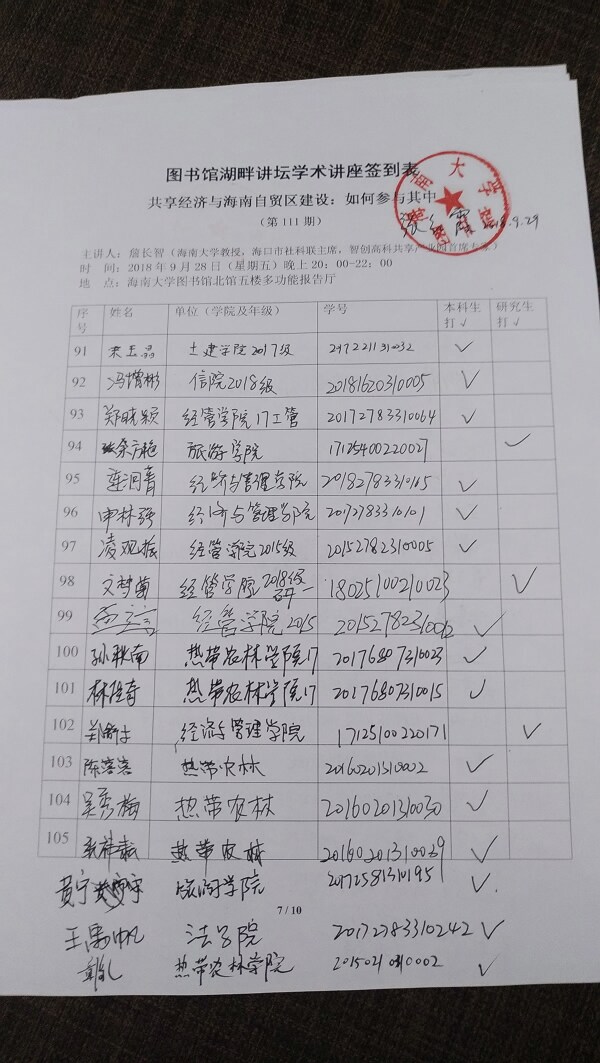 图书馆湖畔讲坛学术讲座签到表
共享经济与海南自贸区建设：如何参与其中
（第 111 期）
2018.9.29
主讲人：詹长智（海南大学教授，海口市社科联主席，智创高科共享产业园首席专家）
时　间：2018 年 9 月 28 日（星期五）晚上 20：00-22：00
地　点：海南大学图书馆北馆五楼多功能报告厅
序号 姓名 单位（学院及年级） 学号 本科生打√ 研究生打√
91 土建学院2017级 √
92 冯增彬 信院2018级 20181620310005 √
93 郑晓颖 经管学院17工管 20172783310064 √
94 余方艳 旅游学院 17125400220027 √
95 经济与管理学院 20182783310165 √
96 申林强 经济与管理学院 20172783310101 √
97 凌观振 经管学院2015级 20152782310005 √
98 文梦菊 经管学院2018级研一 18025100210023 √
99 经管学院2015 20152782310012 √
100 孙耿南 热带农林学院17 20176807310023 √
101 林佳奇 热带农林学院17 20176807310015 √
102 经济与管理学院 17125100220171 √
103 陈容容 热带农林 20160201310002 √
104 吴秀梅 热带农林 20160201310030 √
105 热带农林 20160201310039 √
黄宁宁 旅游学院 20172581310195 √
7 / 10
王禹帆 法学院 20172783310242 √
热带农林学院 √